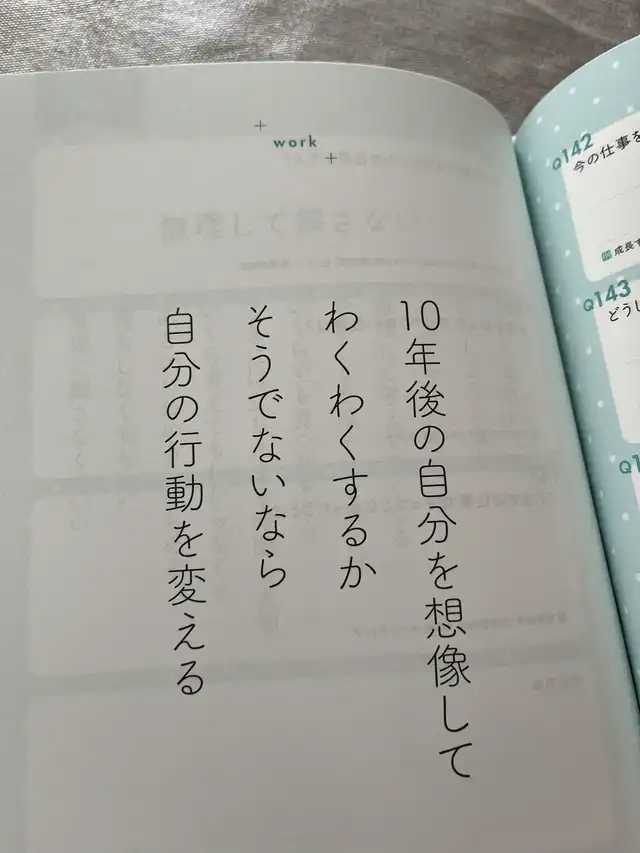 work
10年後の自分を想像して
わくわくするか
そうでないなら
自分の行動を変える
Q142
今の仕事を
成長す
Q143
どうし